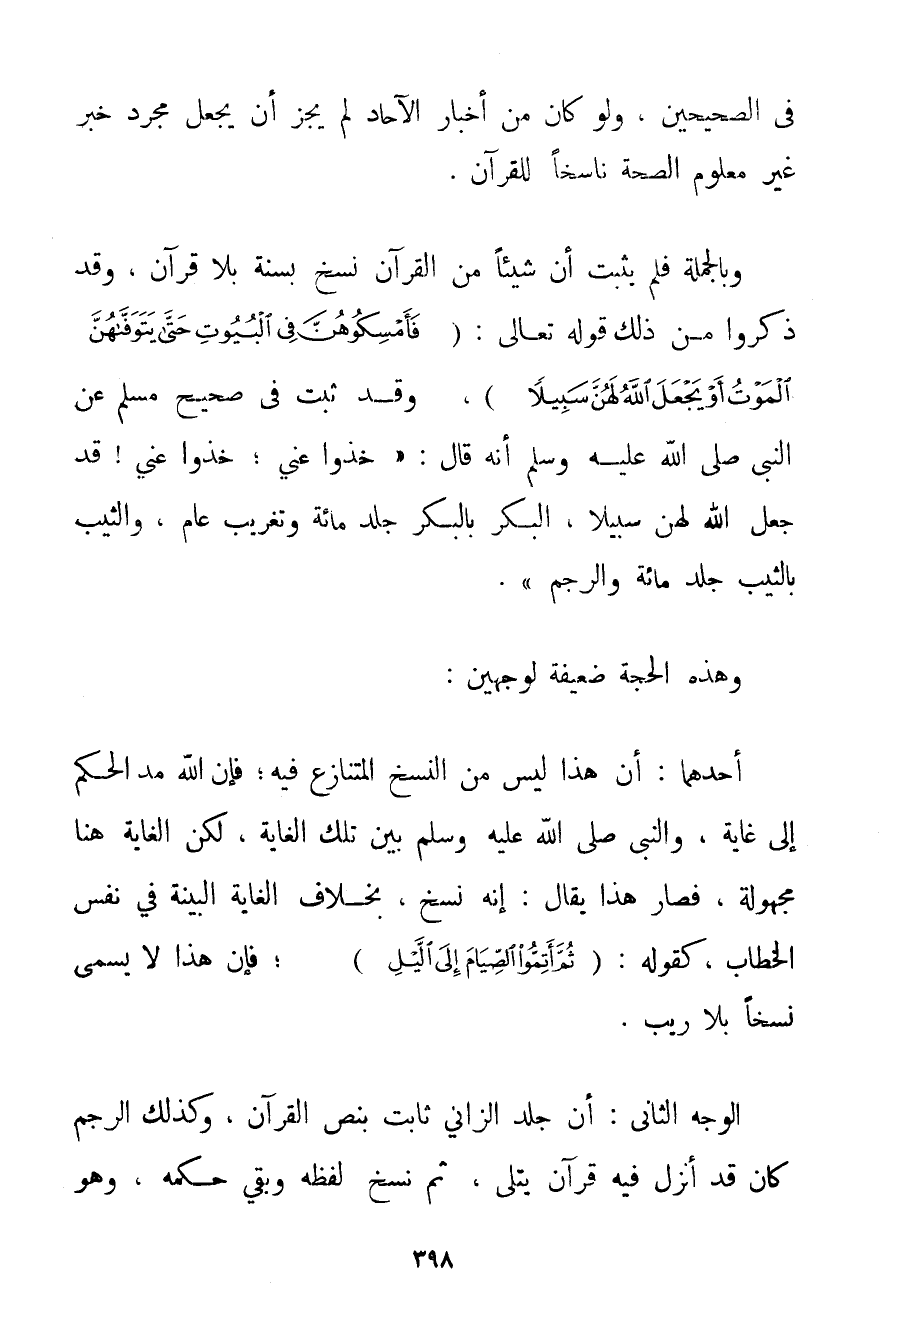 فى الصحيحين ، ولو كان من أخبار الآحاد لم يجز أن يجعل مجرد خبر
غير معلوم الصحة ناسخاً للقرآن .
وبالجملة فلم يثبت أن شيئاً من القرآن نسخ بسنة بلا قرآن ، وقد
ذكروا مـن ذلك قوله تعـالى : ( فَأَمْسِكُوهُنَّ فِى ٱلْبُيُوتِ حَتَّىٰ يَتَوَفَّىٰهُنَّ
ٱلْمَوْتُ أَوْ يَجْعَلَ ٱللَّهُ لَهُنَّ سَبِيلًا ) ، وقـد ثبت فى صحيح مسلم عن
النبى صلى الله عليـه وسلم أنه قال : « خذوا عني ؛ خذوا عني ! قد
جعل الله لهن سبيلا ، البـكر بالبـكر جلد مائة وتغريب عام ، والثيب
بالثيب جلد مائة والرجم » .
وهذه الحجة ضعيفة لوجهين :
أحدهما : أن هذا ليس من النسخ المتنازع فيه ؛ فإن الله مد الحـكم
إلى غاية ، والنبى صلى الله عليه وسلم بين تلك الغاية ، لكن الغاية هنا
مجهولة ، فصار هذا يقال : إنه نسخ ، بخـلاف الغاية البينة في نفس
الخطاب ، كقوله : ( ثُمَّ أَتِمُّوا۟ ٱلصِّيَامَ إِلَى ٱلَّيْلِ ) ؛ فإن هذا لا يسمى
نسخاً بلا ريب .
الوجه الثانى : أن جلد الزاني ثابت بنص القرآن ، وكذلك الرجم
كان قد أنزل فيه قرآن يتلى ، ثم نسخ لفظه وبقي حـكمه ، وهو
٣٩٨